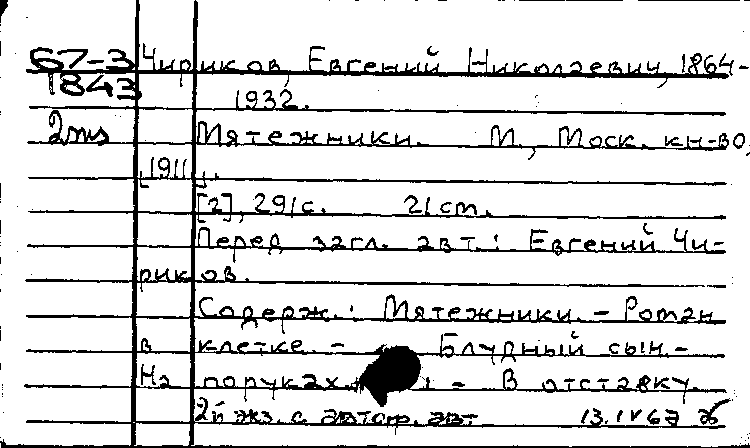 67-3 Чириков, Евгений Николаевич, 1864-
1843 1932.
2экз Мятежники. М., Моск. кн-во,
[1911].
[2], 291с. 21 см.
Перед загл. авт.: Евгений Чи-
риков.
Содерж.: Мятежники. - Роман
в клетке. - Блудный сын. -
На поруках - В отставку.
2й экз. с автогр. авт. 13.IV 67